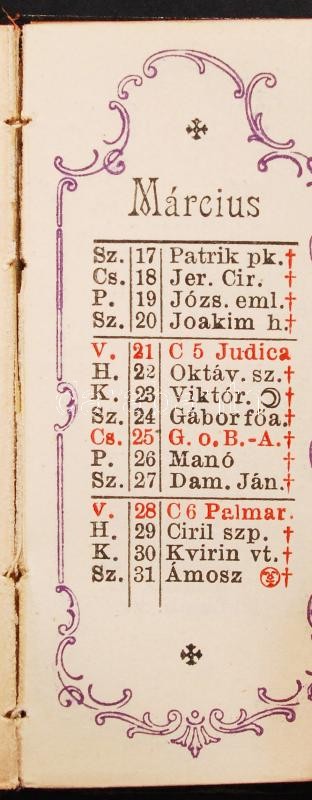 Március
Sz. 17 Patrik pk. †
Cs. 18 Jer. Cir. †
P. 19 Józs. eml. †
Sz. 20 Joakim h. †
V. 21 C 5 Judica
H. 22 Oktáv. sz. †
K. 23 Viktór. ☽ †
Sz. 24 Gábor főa. †
Cs. 25 G. o. B.-A. †
P. 26 Manó †
Sz. 27 Dam. Ján. †
V. 28 C 6 Palmar.
H. 29 Ciril szp. †
K. 30 Kvirin vt. †
Sz. 31 Ámosz †